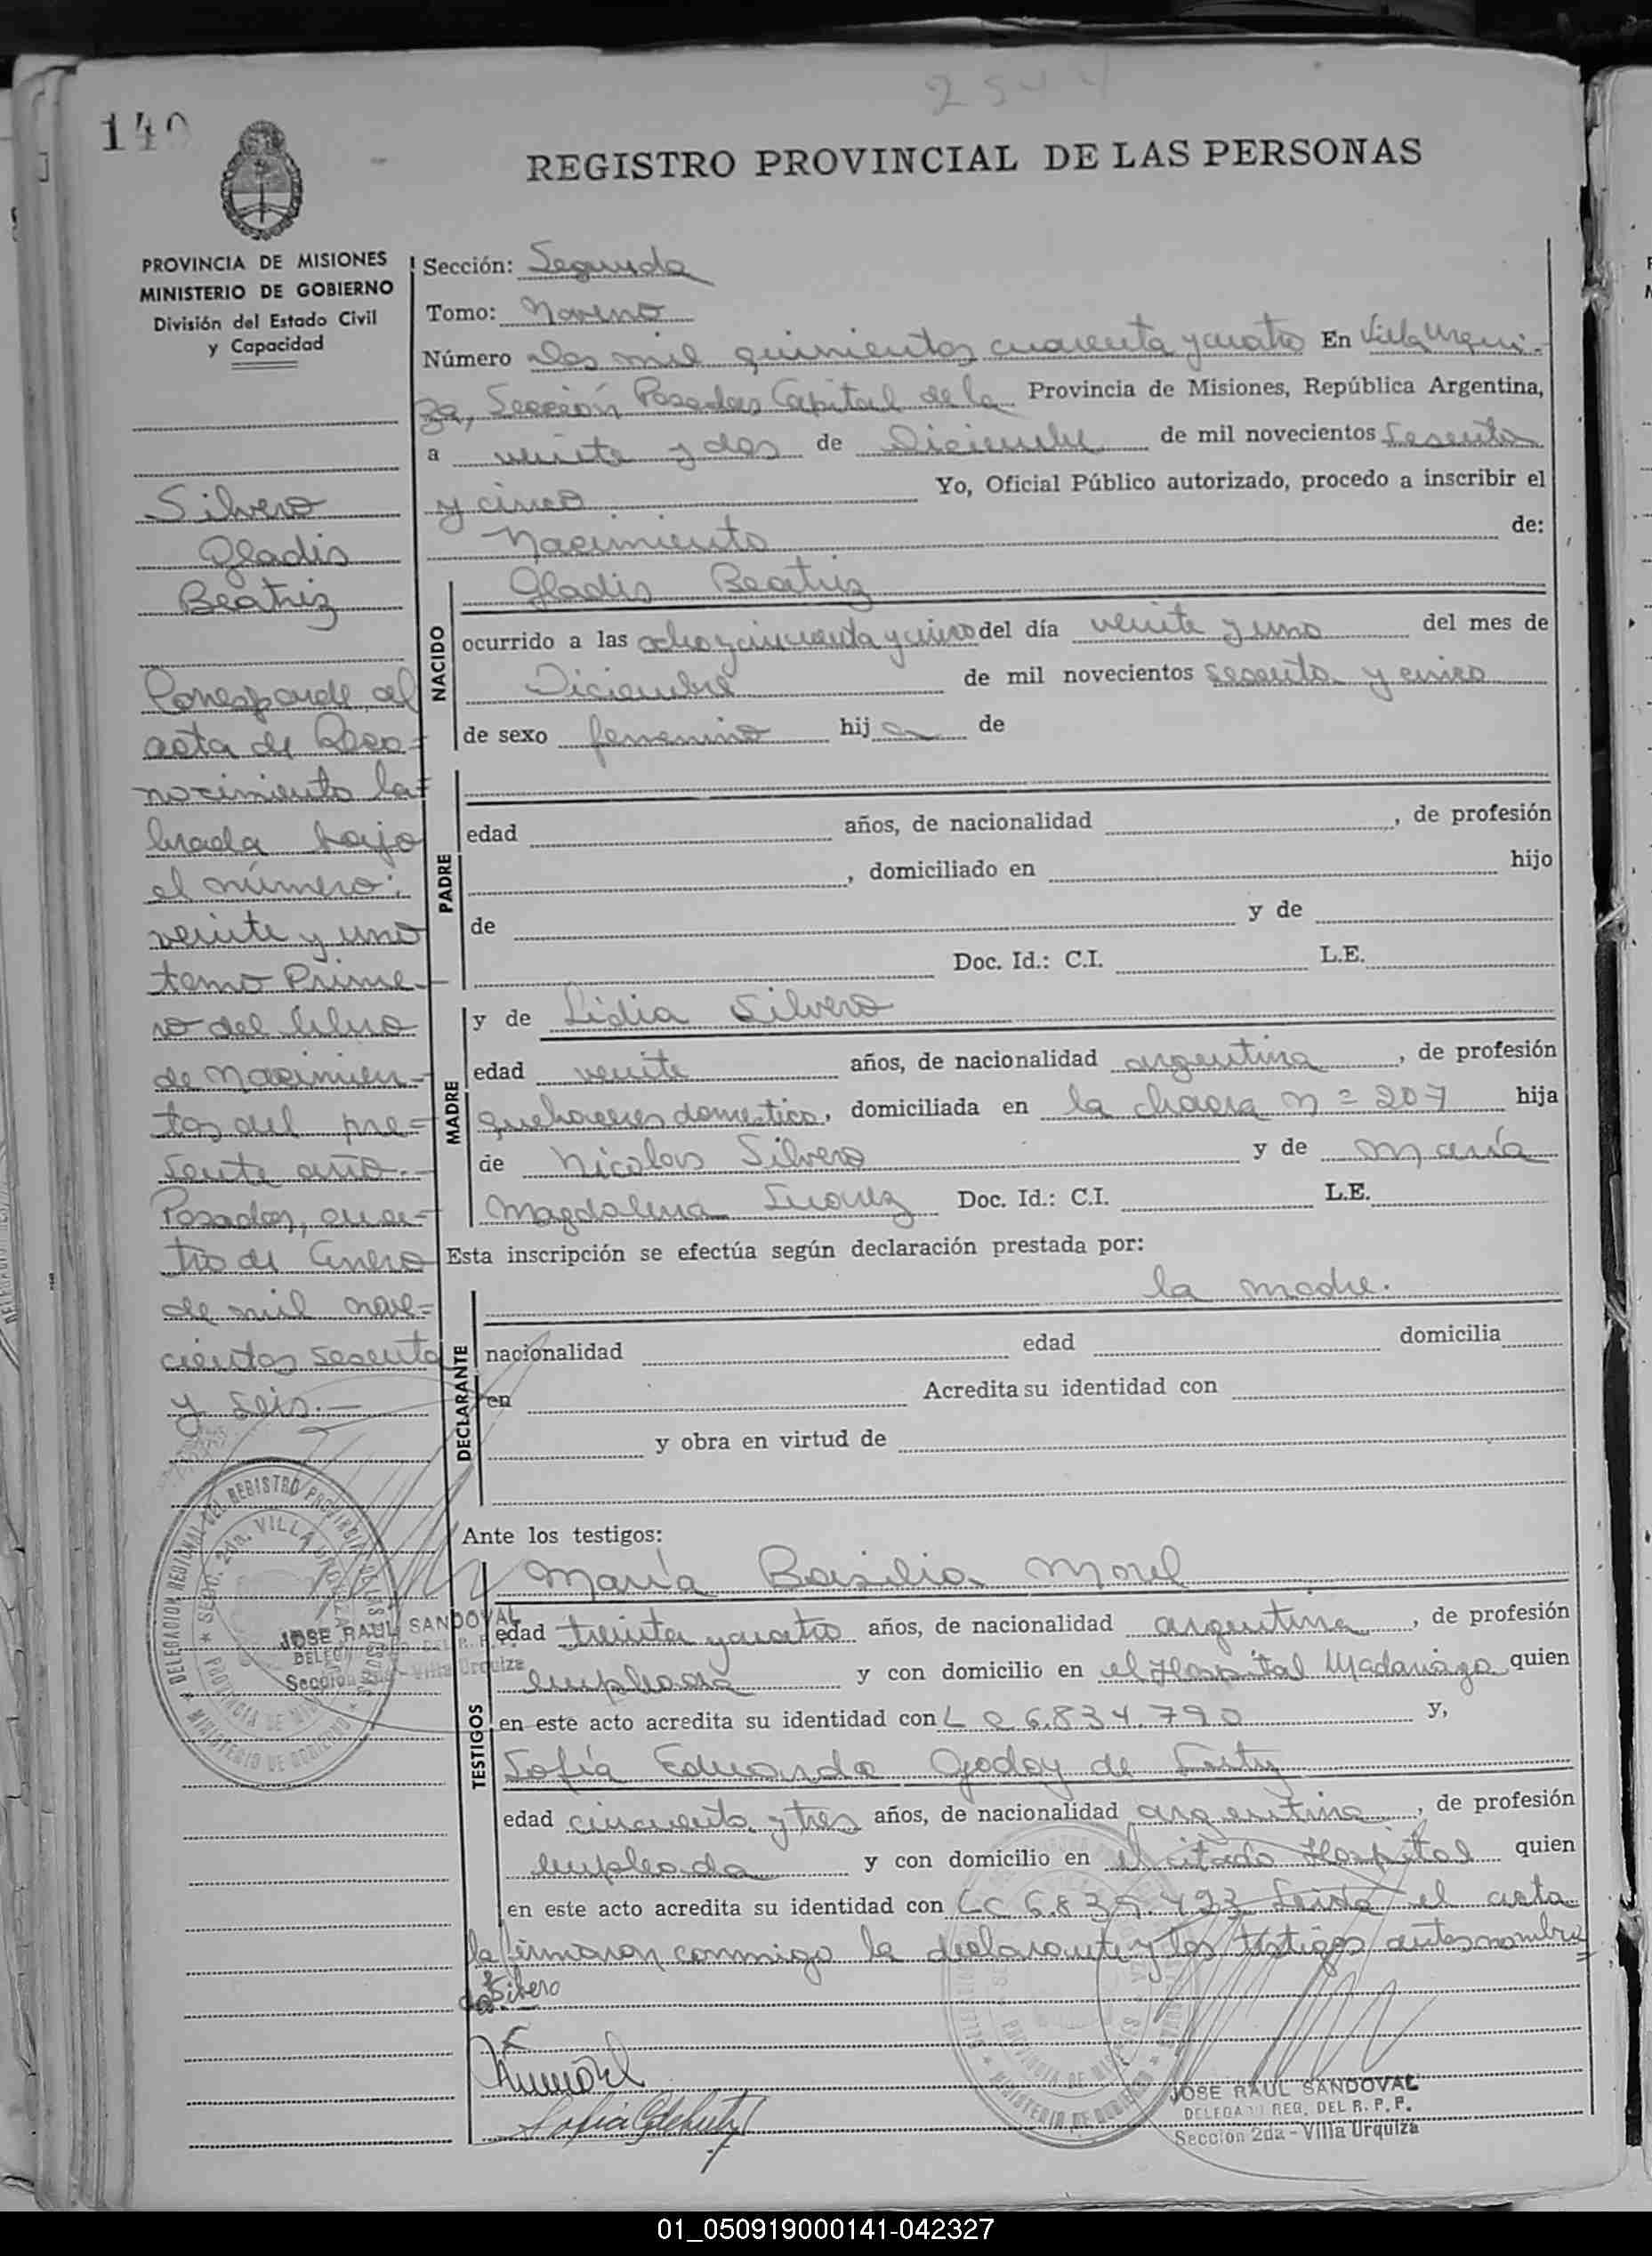 2544
140
REGISTRO PROVINCIAL DE LAS PERSONAS
PROVINCIA DE MISIONES
MINISTERIO DE GOBIERNO
División del Estado Civil
y Capacidad
Silvero
Gladis
Beatriz
Corresponde al
acta de Reco=
nocimiento la=
brada bajo
el número:
veinte y uno
tomo Prime-
ro del libro
de Nacimien-
tos del pre=
sente año.-
Posadas, cua-
tro de Enero
de mil nove=
cientos sesenta
y seis.-
Sección: Segunda
Tomo: Noveno
Número Dos mil quinientos cuarenta y cuatro En Villa Urqui-
za, Sección Posadas Capital de la Provincia de Misiones, República Argentina,
a veinte y dos de Diciembre de mil novecientos sesenta
y cinco Yo, Oficial Público autorizado, procedo a inscribir el
Nacimiento de:
NACIDO
Gladis Beatriz
ocurrido a las ocho y cincuenta y cinco del día veinte y uno del mes de
Diciembre de mil novecientos sesenta y cinco
de sexo femenino hija de
PADRE
edad años, de nacionalidad , de profesión
, domiciliado en hijo
de y de
Doc. Id.: C.I. L.E.
MADRE
y de Lidia Silvero
edad veinte años, de nacionalidad argentina, de profesión
quehaceres domestico, domiciliada en la chacra n= 207 hija
de Nicolas Silvero y de María
Magdalena Suarez Doc. Id.: C.I. L.E.
Esta inscripción se efectúa según declaración prestada por:
DECLARANTE
la madre.
nacionalidad edad domicilia
en Acredita su identidad con
y obra en virtud de
Ante los testigos:
TESTIGOS
María Basilia Morel
edad treinta y cuatro años, de nacionalidad argentina, de profesión
empleada y con domicilio en el Hospital Madariaga quien
en este acto acredita su identidad con L C 6.834.790 y,
Sofía Eduarda Godoy de
edad cincuenta y tres años, de nacionalidad argentina, de profesión
empleada y con domicilio en el citado Hospital quien
en este acto acredita su identidad con LC 6.835.493 Leida el acta
la firmaron conmigo la declarante y los testigos antes nombra=
dos
Silvero
DELEGACION REGIONAL DEL REGISTRO PROVINCIAL DE LAS PERSONAS
SECC. 2da. VILLA URQUIZA
PROVINCIA DE MISIONES
MINISTERIO DE GOBIERNO
JOSE RAUL SANDOVAL
Sección 2da - Villa Urquiza
PROVINCIA DE MISIONES
MINISTERIO DE GOBIERNO
JOSE RAUL SANDOVAL
DELEGADO REG. DEL R. P. P.
Sección 2da - Villa Urquiza
01_050919000141-042327